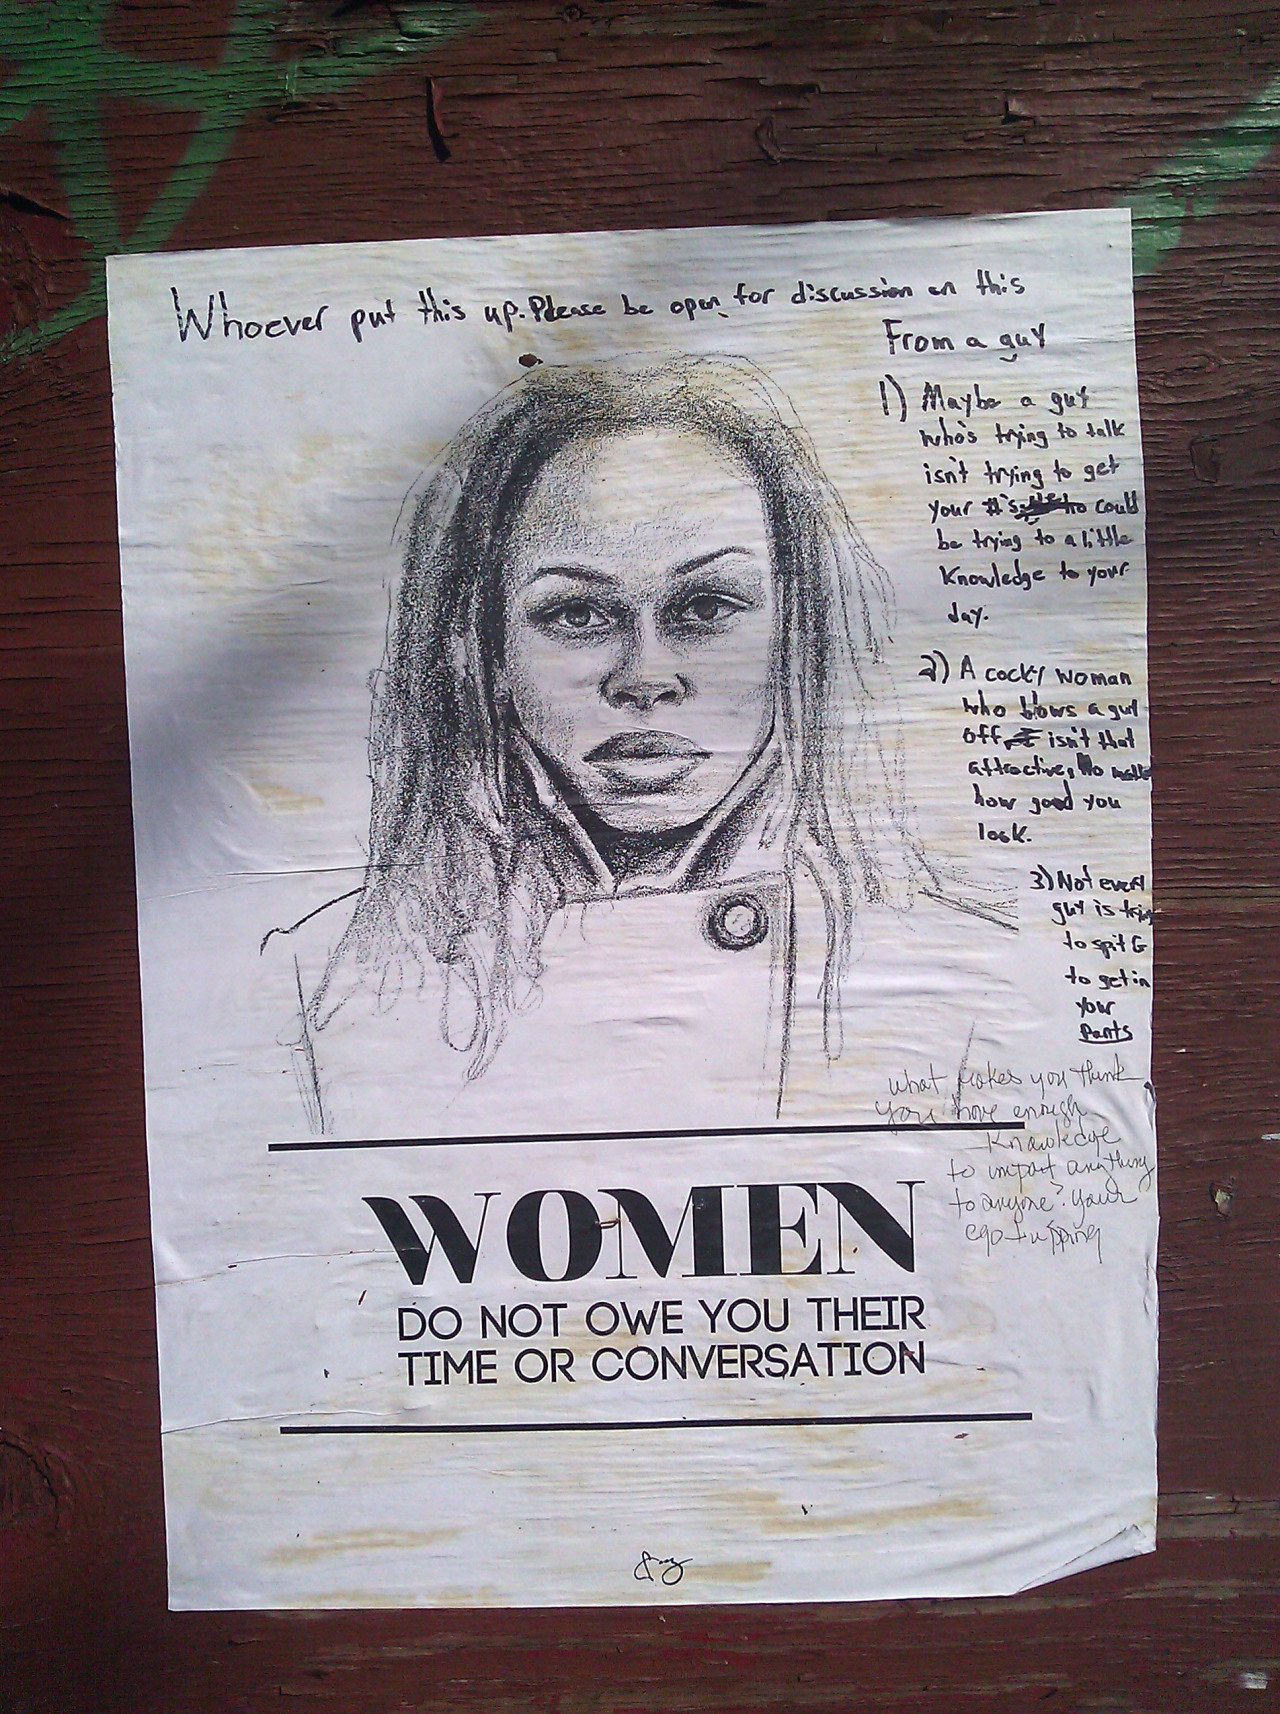 Whoever put this up. Please be open for discussion on this
From a guy
1) Maybe a guy
who's trying to talk
isn't trying to get
your #'s could
be trying to a little
knowledge to your
day.
2) A cocky woman
who blows a guy
off isn't that
attractive, No matter
how good you
look.
3) Not every
guy is tring
to spit G
to get in
your
Pants
what makes you think
you have enough
knowledge
to impart anything
to anyone? your
ego tripping
WOMEN
DO NOT OWE YOU THEIR
TIME OR CONVERSATION